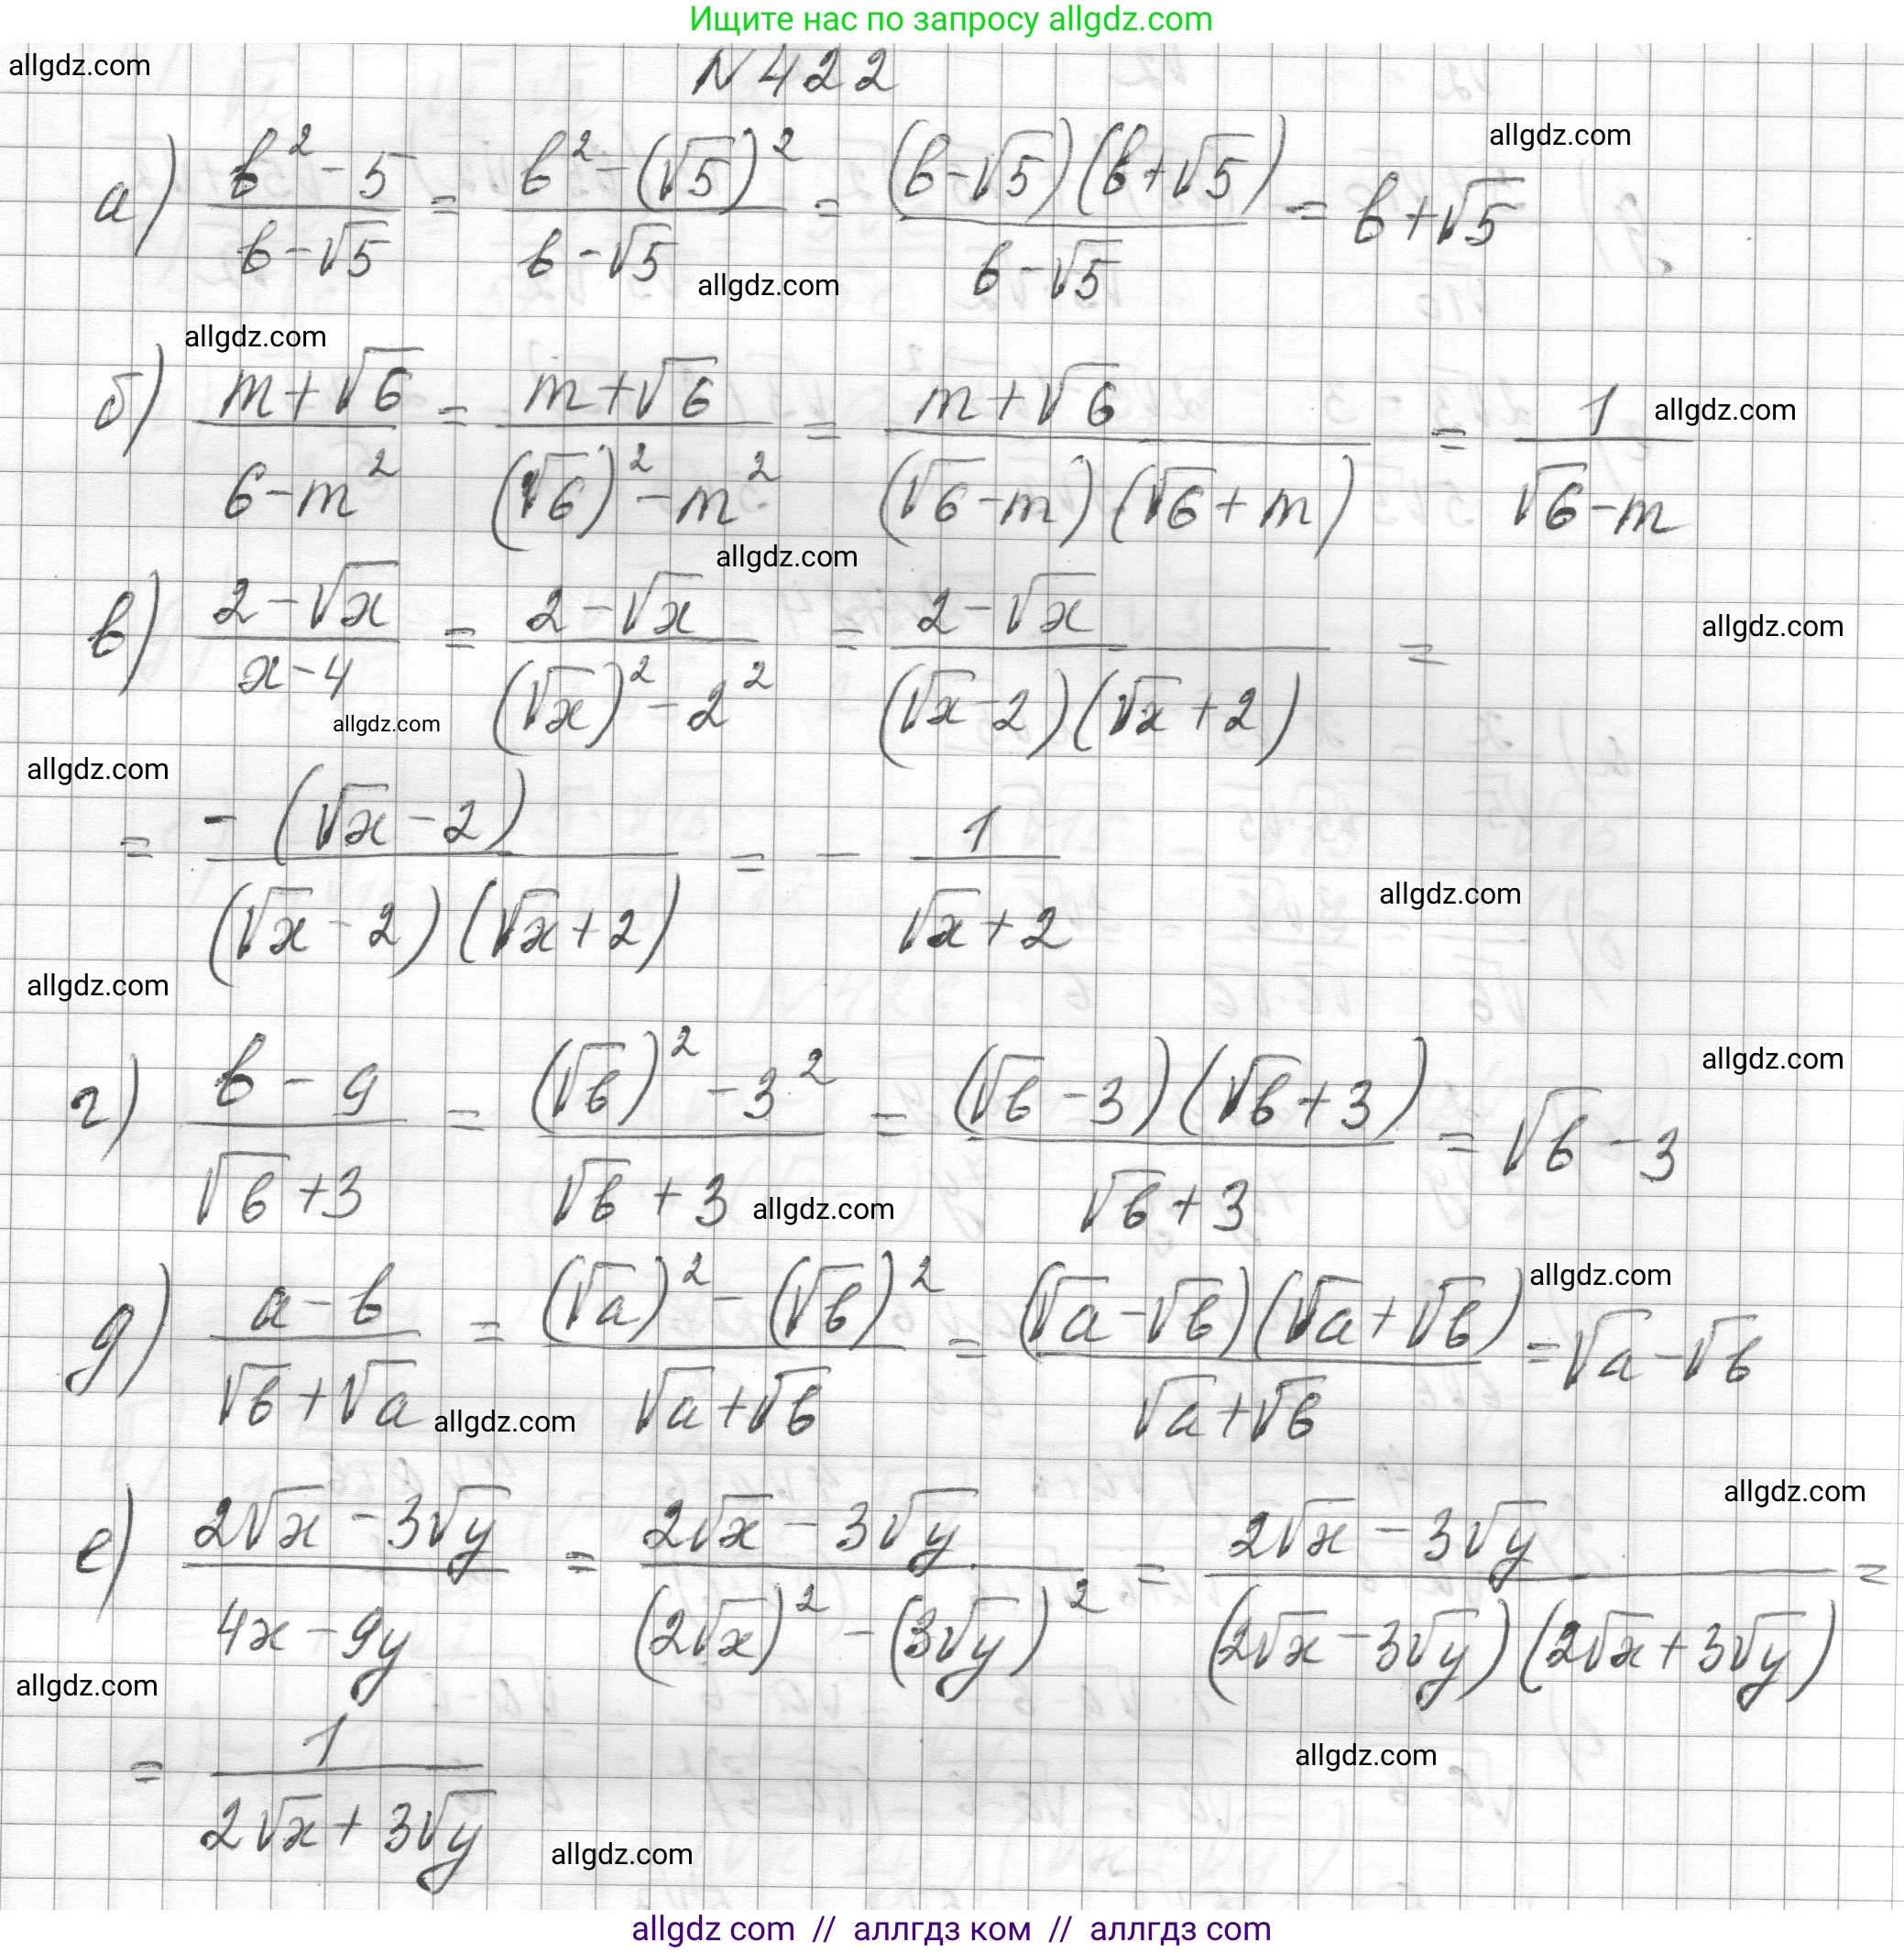 Ищите нас по запросу allgdz.com
allgdz.com
N 422
allgdz.com
а) \frac{b^2-5}{b-\sqrt{5}} = \frac{b^2-(\sqrt{5})^2}{b-\sqrt{5}} = \frac{(b-\sqrt{5})(b+\sqrt{5})}{b-\sqrt{5}} = b+\sqrt{5}
allgdz.com
allgdz.com
б) \frac{m+\sqrt{6}}{6-m^2} = \frac{m+\sqrt{6}}{(\sqrt{6})^2-m^2} = \frac{m+\sqrt{6}}{(\sqrt{6}-m)(\sqrt{6}+m)} = \frac{1}{\sqrt{6}-m}
allgdz.com
allgdz.com
в) \frac{2-\sqrt{x}}{x-4} = \frac{2-\sqrt{x}}{(\sqrt{x})^2-2^2} = \frac{2-\sqrt{x}}{(\sqrt{x}-2)(\sqrt{x}+2)} =
allgdz.com
allgdz.com
allgdz.com
= \frac{-(\sqrt{x}-2)}{(\sqrt{x}-2)(\sqrt{x}+2)} = -\frac{1}{\sqrt{x}+2}
allgdz.com
allgdz.com
г) \frac{b-9}{\sqrt{b}+3} = \frac{(\sqrt{b})^2-3^2}{\sqrt{b}+3} = \frac{(\sqrt{b}-3)(\sqrt{b}+3)}{\sqrt{b}+3} = \sqrt{b}-3
allgdz.com
allgdz.com
д) \frac{a-b}{\sqrt{b}+\sqrt{a}} = \frac{(\sqrt{a})^2-(\sqrt{b})^2}{\sqrt{a}+\sqrt{b}} = \frac{(\sqrt{a}-\sqrt{b})(\sqrt{a}+\sqrt{b})}{\sqrt{a}+\sqrt{b}} = \sqrt{a}-\sqrt{b}
allgdz.com
allgdz.com
allgdz.com
е) \frac{2\sqrt{x}-3\sqrt{y}}{4x-9y} = \frac{2\sqrt{x}-3\sqrt{y}}{(2\sqrt{x})^2-(3\sqrt{y})^2} = \frac{2\sqrt{x}-3\sqrt{y}}{(2\sqrt{x}-3\sqrt{y})(2\sqrt{x}+3\sqrt{y})} =
allgdz.com
allgdz.com
= \frac{1}{2\sqrt{x}+3\sqrt{y}}
allgdz.com
allgdz com // аллгдз ком // аллгдз com